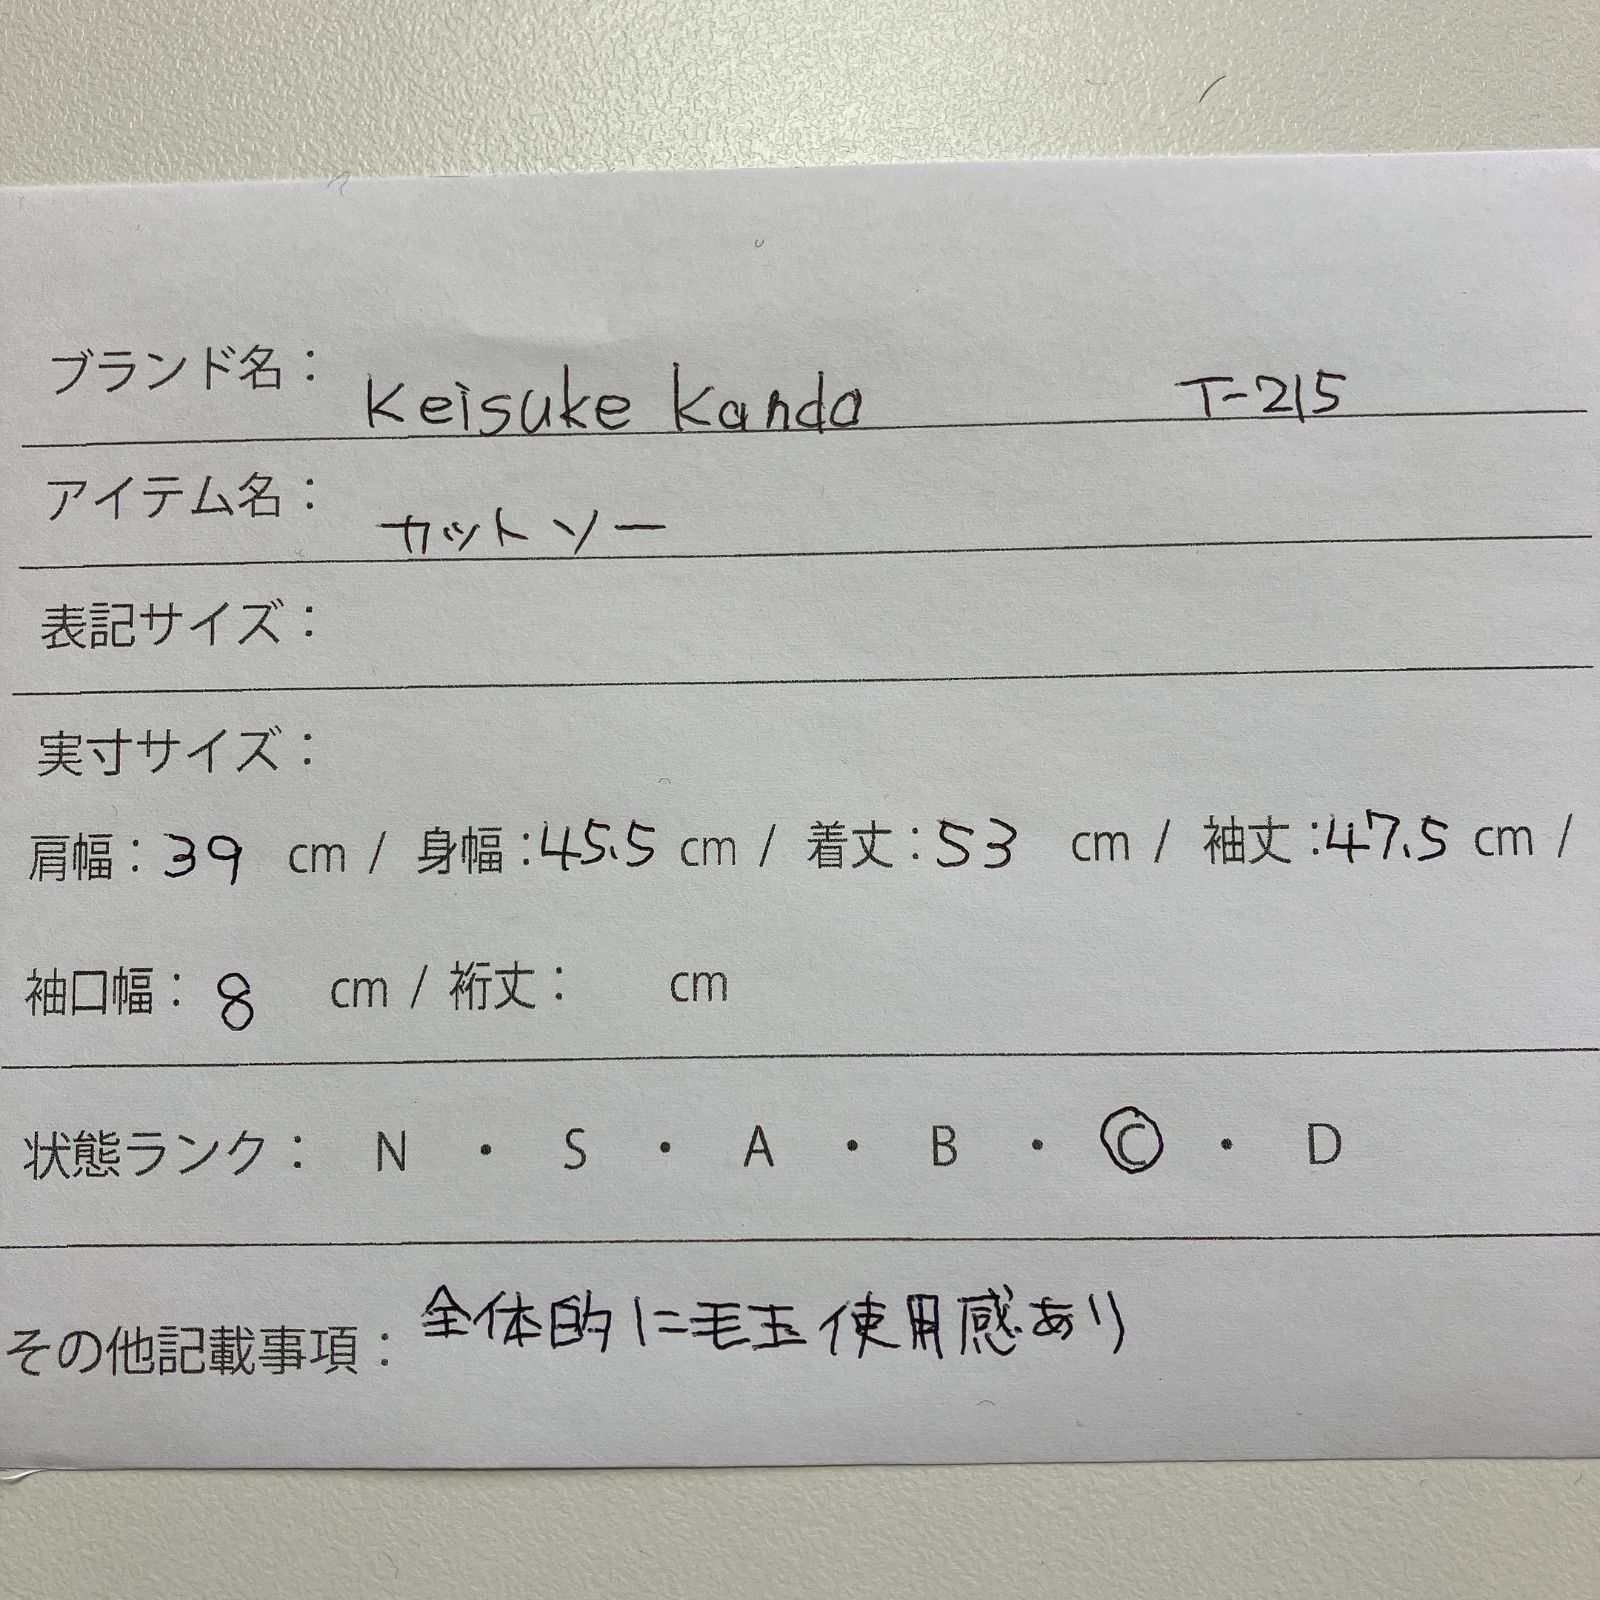 ブランド名： Keisuke Kanda T-215
アイテム名： カットソー
表記サイズ：
実寸サイズ：
肩幅：39 cm / 身幅：45.5 cm / 着丈：53 cm / 袖丈：47.5 cm /
袖口幅：8 cm / 裄丈： cm
状態ランク： N ・ S ・ A ・ B ・ C ・ D
その他記載事項： 全体的に毛玉使用感あり